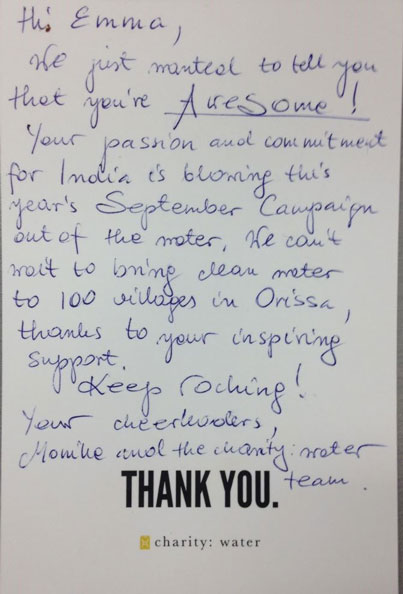 Hi Emma,
We just wanted to tell you
that you're Awesome!
Your passion and commitment
for India is blowing this
year's September Campaign
out of the water. We can't
wait to bring clean water
to 100 villages in Orissa,
thanks to your inspiring
support.
Keep rocking!
Your cheerleaders,
Monika and the charity: water
team.
THANK YOU.
charity: water